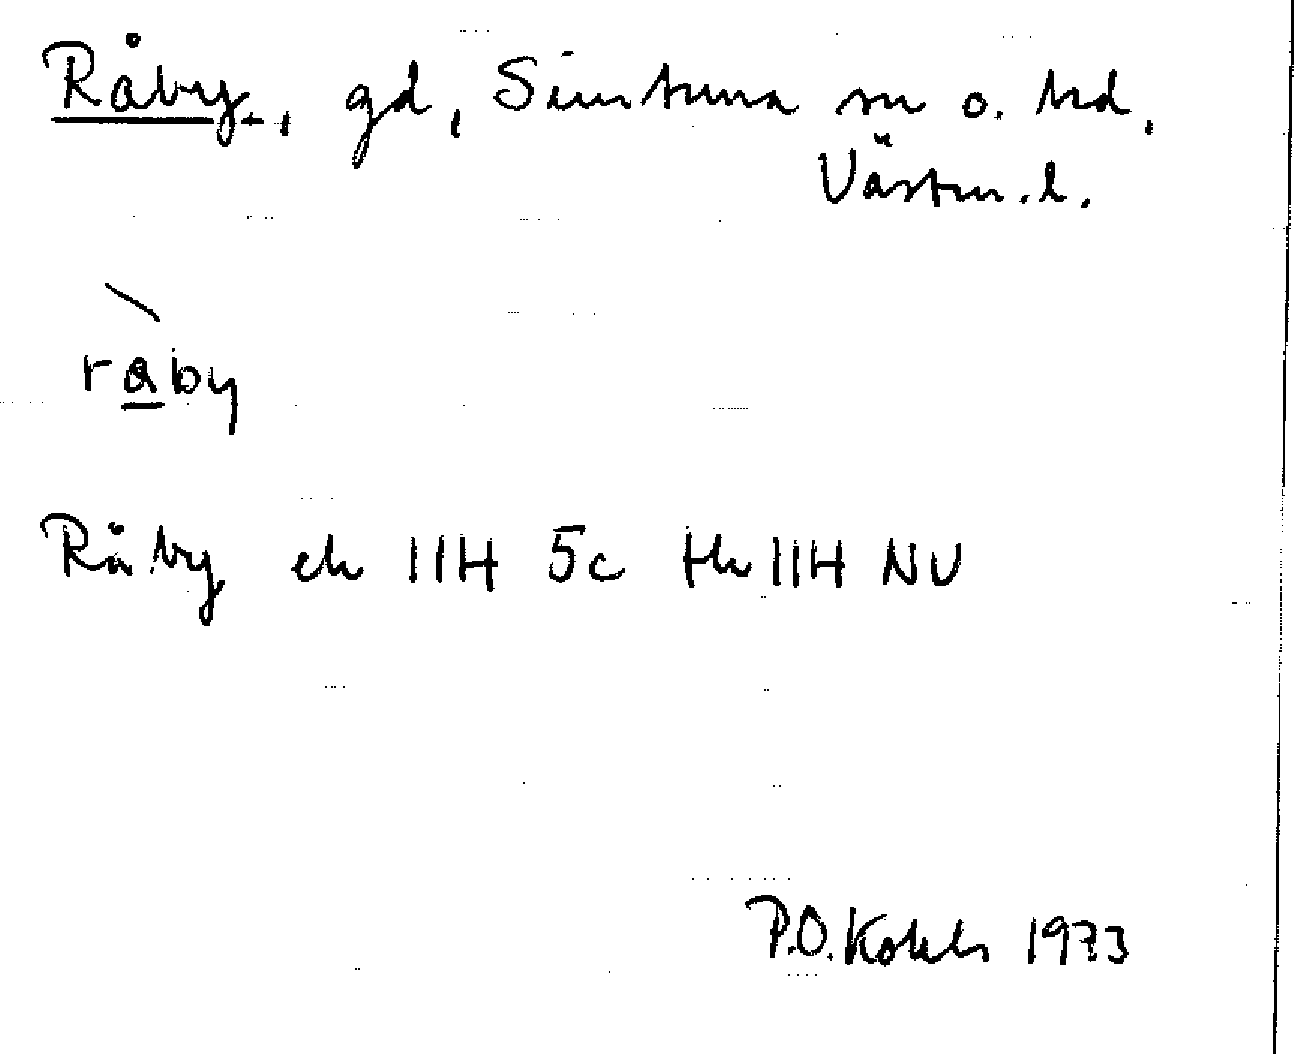 Råby, gd, Simtuna sn o. hd,
Västm.l.
råby
Råby ek 11H 5c tk 11H NV
P.O. 1973